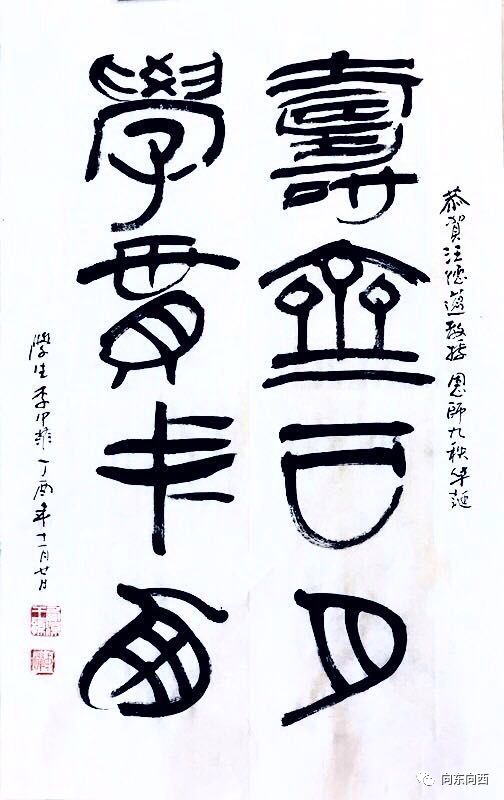 恭賀汪德邁教授 恩師九秩华誕
壽齊日月
學貫西
學生李中 丁酉年十一月廿日
向东向西